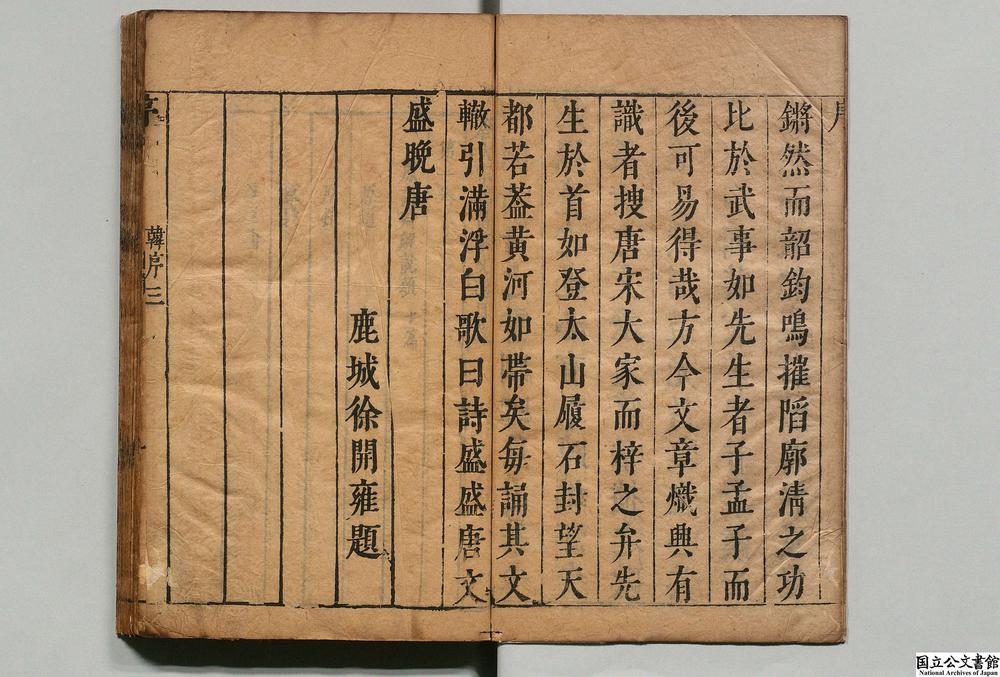 鏘然而韶鈞鳴摧陷廓淸之功
比於武事如先生者子孟子而
後可易得哉方今文章熾興有
識者搜唐宋大家而梓之弁先
生於首如登太山履石封望天
都若蓋黃河如帶矣每誦其文
轍引滿浮白歌曰詩盛盛唐文
盛晩唐
鹿城徐開雍題
韓序三
国立公文書館
National Archives of Japan